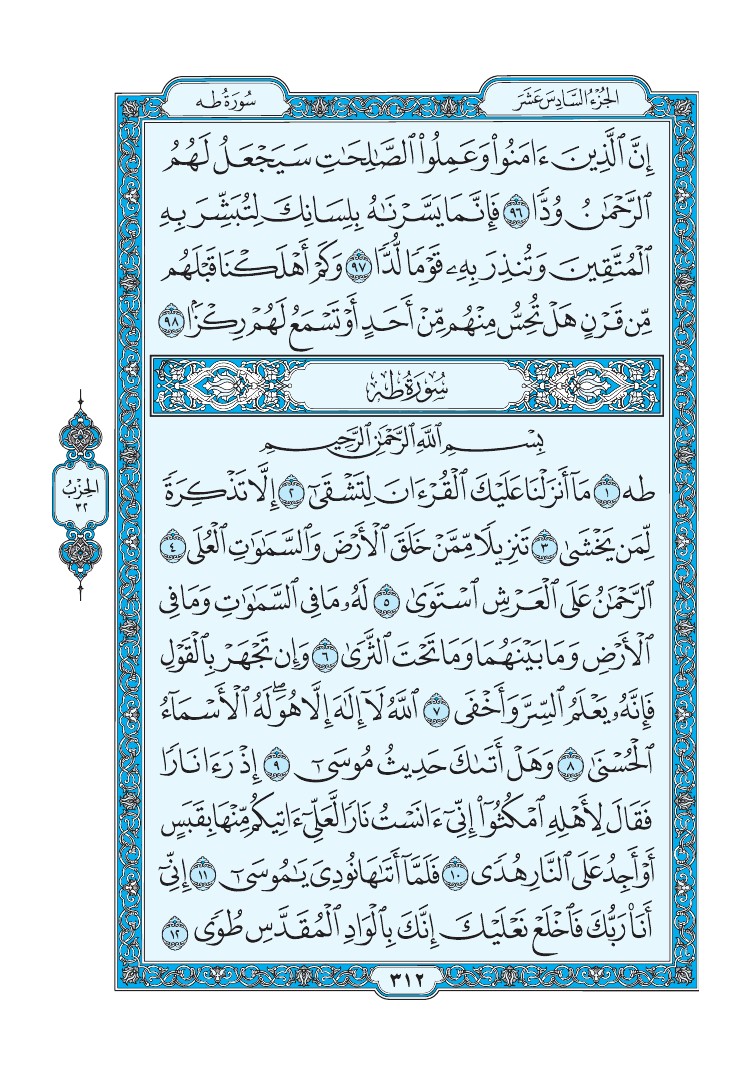 الجُزْءُ السَّادِسَ عَشَرَ
سُورَةُ طه
إِنَّ ٱلَّذِينَ ءَامَنُواْ وَعَمِلُواْ ٱلصَّٰلِحَٰتِ سَيَجْعَلُ لَهُمُ
ٱلرَّحْمَٰنُ وُدًّا ٩٦ فَإِنَّمَا يَسَّرْنَٰهُ بِلِسَانِكَ لِتُبَشِّرَ بِهِ
ٱلْمُتَّقِينَ وَتُنذِرَ بِهِۦ قَوْمًا لُّدًّا ٩٧ وَكَمْ أَهْلَكْنَا قَبْلَهُم
مِّن قَرْنٍ هَلْ تُحِسُّ مِنْهُم مِّنْ أَحَدٍ أَوْ تَسْمَعُ لَهُمْ رِكْزًۢا ٩٨
سُورَةُ طه
بِسْمِ ٱللَّهِ ٱلرَّحْمَٰنِ ٱلرَّحِيمِ
طه ١ مَآ أَنزَلْنَا عَلَيْكَ ٱلْقُرْءَانَ لِتَشْقَىٰٓ ٢ إِلَّا تَذْكِرَةً
لِّمَن يَخْشَىٰ ٣ تَنزِيلًا مِّمَّنْ خَلَقَ ٱلْأَرْضَ وَٱلسَّمَٰوَٰتِ ٱلْعُلَى ٤
ٱلرَّحْمَٰنُ عَلَى ٱلْعَرْشِ ٱسْتَوَىٰ ٥ لَهُۥ مَا فِى ٱلسَّمَٰوَٰتِ وَمَا فِى
ٱلْأَرْضِ وَمَا بَيْنَهُمَا وَمَا تَحْتَ ٱلثَّرَىٰ ٦ وَإِن تَجْهَرْ بِٱلْقَوْلِ
فَإِنَّهُۥ يَعْلَمُ ٱلسِّرَّ وَأَخْفَى ٧ ٱللَّهُ لَآ إِلَٰهَ إِلَّا هُوَۖ لَهُ ٱلْأَسْمَآءُ
ٱلْحُسْنَىٰ ٨ وَهَلْ أَتَىٰكَ حَدِيثُ مُوسَىٰٓ ٩ إِذْ رَءَا نَارًا
فَقَالَ لِأَهْلِهِ ٱمْكُثُوٓاْ إِنِّىٓ ءَانَسْتُ نَارًا لَّعَلِّىٓ ءَاتِيكُم مِّنْهَا بِقَبَسٍ
أَوْ أَجِدُ عَلَى ٱلنَّارِ هُدًى ١٠ فَلَمَّآ أَتَىٰهَا نُودِىَ يَٰمُوسَىٰٓ ١١ إِنِّىٓ
أَنَا۠ رَبُّكَ فَٱخْلَعْ نَعْلَيْكَ إِنَّكَ بِٱلْوَادِ ٱلْمُقَدَّسِ طُوًى ١٢
الحِزْبُ
٣٢
٣١٢